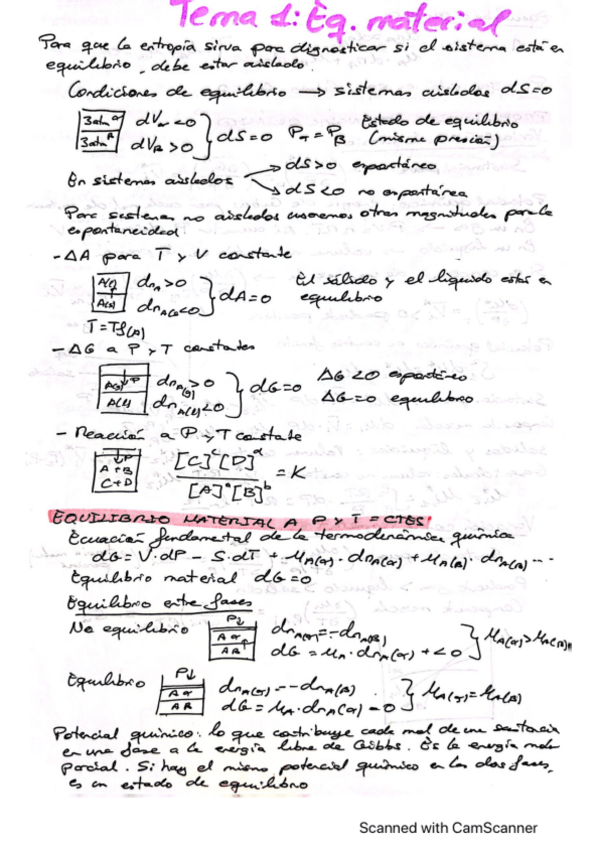 Tema 1: Eq. material
Para que la entropía sirva para diagnosticar si el sistema está en
equilibrio, debe estar aislado.
Condiciones de equilibrio → sistemas aislados dS=0
3atm α dVα<0
3atm β dVβ>0 } dS=0 Pα=Pβ Estado de equilibrio
(misma presión)
En sistemas aislados dS>0 espontáneo
dS<0 no espontánea
Para sistemas no aislados usaremos otras magnitudes para la
espontaneidad:
- ΔA para T y V constante
A(l) dnA>0 } dA=0 El sólido y el líquido están en
A(s) dnA(s)<0 equilibrio
T=Tf(A)
- ΔG a P y T constantes
↓P
A(g) dnA(g)>0 } dG=0 ΔG<0 espontáneo
A(l) dnA(l)<0 ΔG=0 equilibrio
- Reacción a P y T constate
↓P
A+B
C+D
[C]ᶜ[D]ᵈ / [A]ᵃ[B]ᵇ = K
EQUILIBRIO MATERIAL A P y T = CTES
Ecuación fundamental de la termodinámica química
dG = V·dP - S·dT + μA(α)·dnA(α) + μA(β)·dnA(β) ...
Equilibrio material dG=0
Equilibrio entre fases
No equilibrio P↓ dnA(α)=-dnA(β) } μA(α)>μA(β)
Aα
Aβ dG = μA·dnA(α) + <0
Equilibrio P↓ dnA(α)=-dnA(β) } μA(α)=μA(β)
Aα
Aβ dG = μA·dnA(α) = 0
Potencial químico: lo que contribuye cada mol de una sustancia
en una fase a la energía libre de Gibbs. Es la energía molar
parcial. Si hay el mismo potencial químico en las dos fases,
es un estado de equilibrio
Scanned with CamScanner